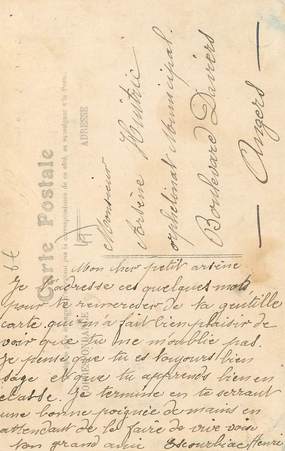 Carte Postale
ADRESSE
Monsieur
Arsène
orphelinat Municipal
Boulevard Daviers
Angers
Mon cher petit arsène
Je t'adresse ces quelques mots
pour te remercier de ta gentille
carte qui m'a fait bien plaisir de
voir que tu ne m'oublie pas.
Je pense que tu es toujours bien
sage et que tu apprends bien en
classe. Je termine en te serrant
une bonne poignée de mains en
attendant de le faire de vive voix
ton grand ami Escourbiac Henri